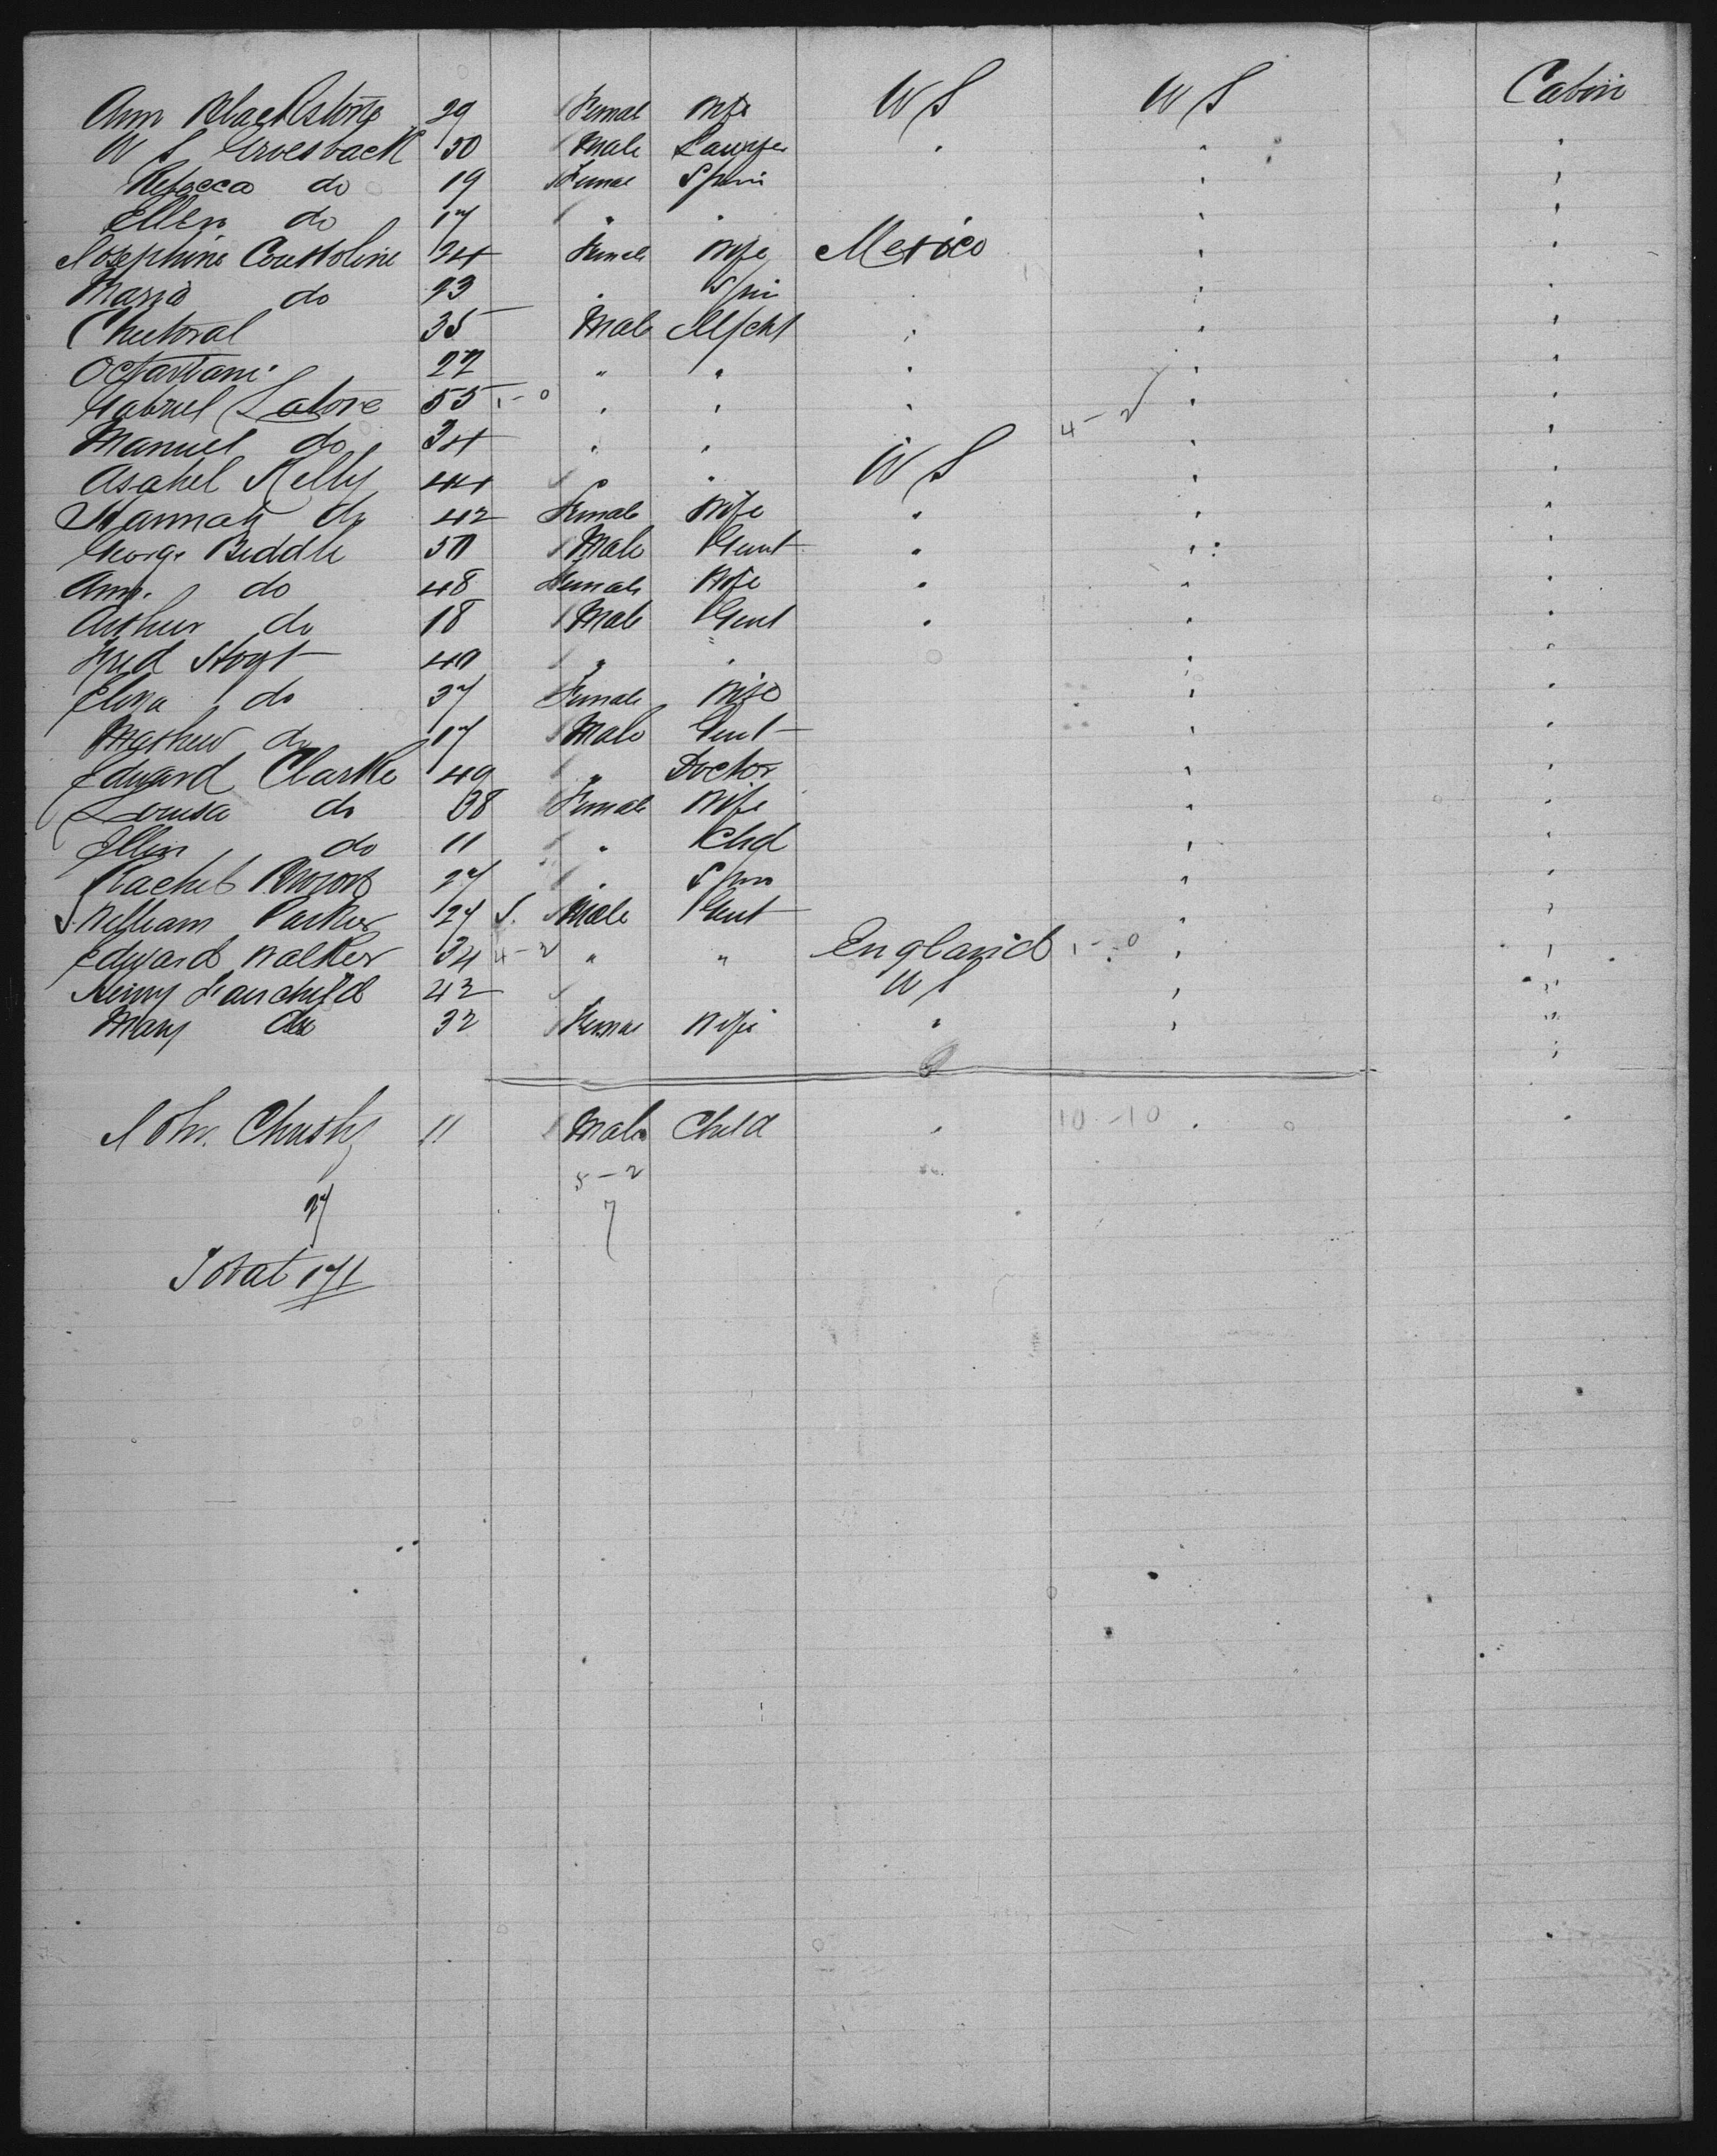 Ann Blackstone 29 Female Wife U S U S Cabin
W S Groesback 50 Male Lawyer " " "
Rebecca do 19 Female Spin " "
Ellen do 17 " " " "
Josephine 24 Female Wife Mexico " "
Maria do 23 " Spin " " "
35 Male Mcht " " "
27 " " " " "
Gabriel Labore 55 1-0 " " " 4-2 " "
Manuel do 34 " " " "
Asahel Kelly 44 " U S " "
Hannah do 42 Female Wife " " "
George Biddle 50 Male Gent " " "
Ann do 48 Female Wife " " "
Arthur do 18 Male Gent " " "
Fred Hoyt 40 " " " "
Eliza do 37 Female Wife " "
Mathew do 17 Male Gent " "
Edward Clarke 49 " Doctor " "
Louisa do 38 Female Wife " "
Ellen do 11 " Chd " "
Rachel 27 " Spin " "
William Parker 27 S. Male Gent " "
Edward Walker 34 4-2 " " England 1-0 " "
Henry Fairchild 42 U S " "
Mary do 32 Female Wife " " "
John Christy 11 Male Child " 10-10 " "
5-2
27 7
Total 171